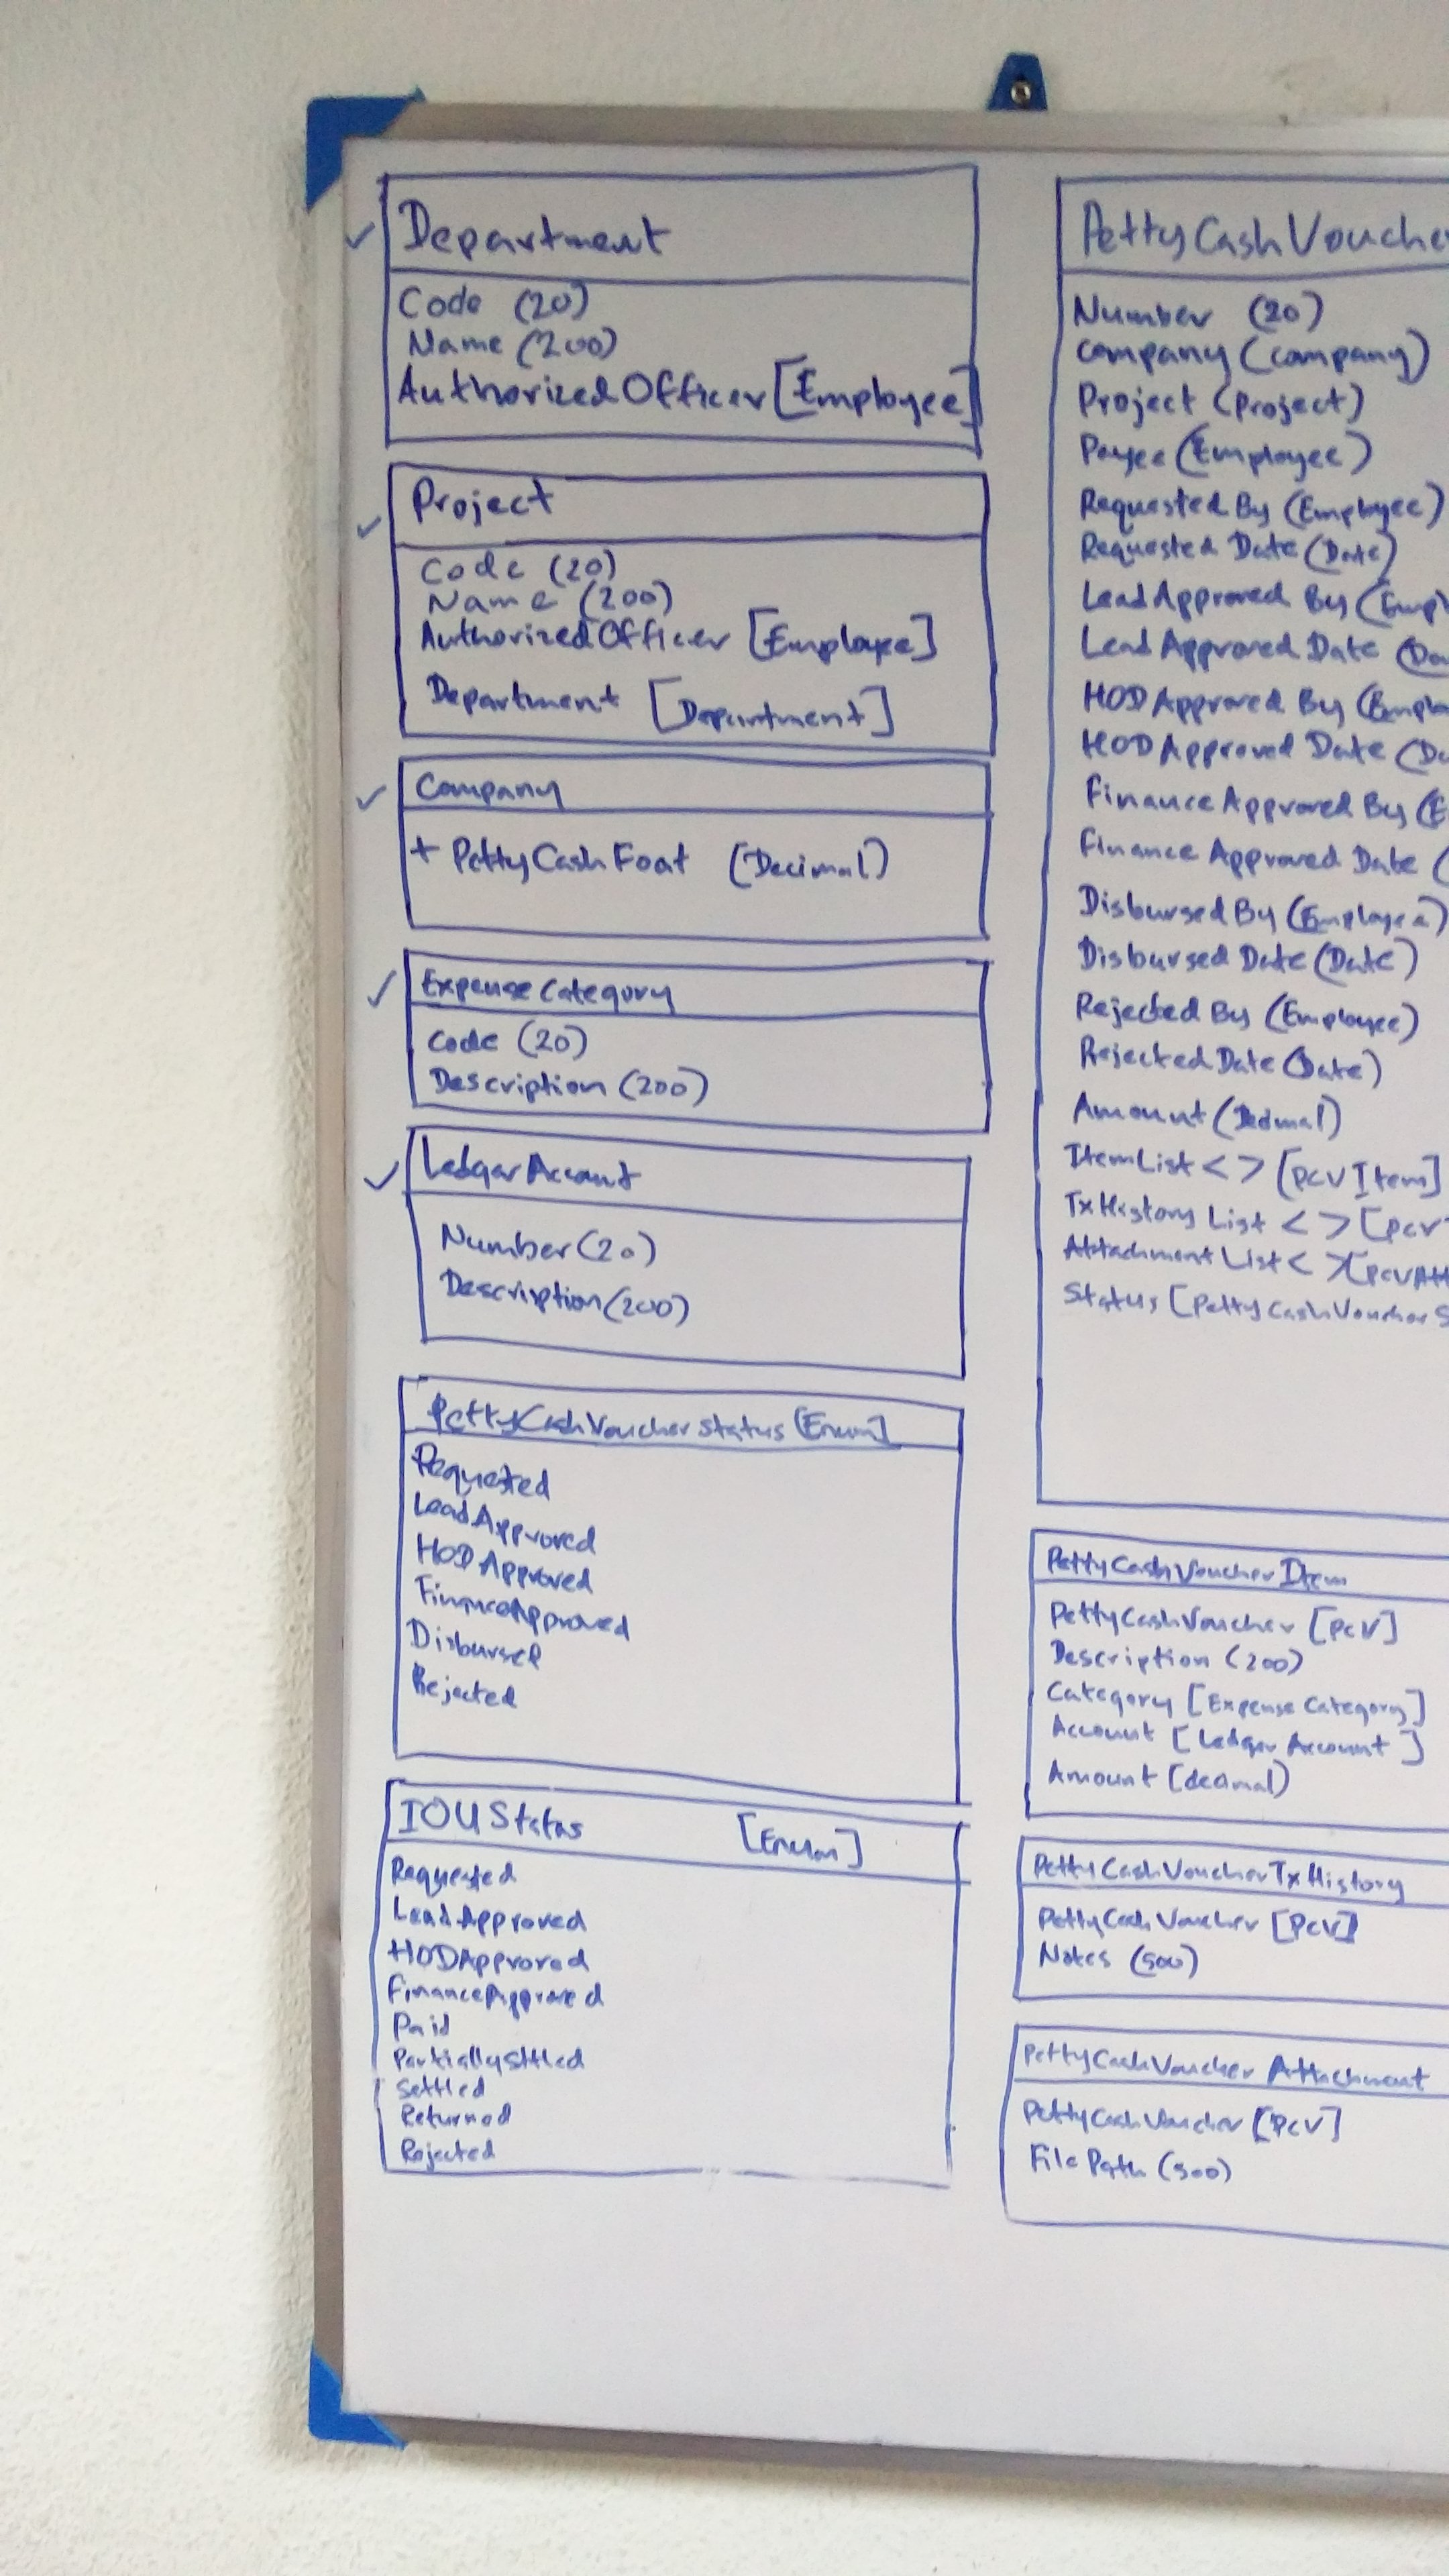 Department
Code (20)
Name (200)
AuthorizedOfficer [Employee]
Project
Code (20)
Name (200)
AuthorizedOfficer [Employee]
Department [Department]
Company
+ PettyCashFoat (Decimal)
ExpenseCategory
Code (20)
Description (200)
LedgerAccount
Number (20)
Description (200)
PettyCashVoucherStatus [Enum]
Requested
LeadApproved
HODApproved
FinanceApproved
Disbursed
Rejected
IOUStatus [Enum]
Requested
LeadApproved
HODApproved
FinanceApproved
Paid
PartiallySettled
Settled
Returned
Rejected
PettyCashVouche
Number (20)
Company (Company)
Project (Project)
Payee (Employee)
Requested By (Employee)
Requested Date (Date)
LeadApproved By (Empl
Lead Approved Date (Da
HOD Approved By (Emplo
HOD Approved Date (Da
Finance Approved By (E
Finance Approved Date (
Disbursed By (Employee)
Disbursed Date (Date)
Rejected By (Employee)
Rejected Date (Date)
Amount (Decimal)
ItemList < > [PCVItem]
TxHistory List < > [PCV
Attachment List < > [PCVAtt
Status [PettyCashVoucherS
PettyCashVoucherItem
PettyCashVoucher [PCV]
Description (200)
Category [Expense Category]
Account [Ledger Account]
Amount [decimal)
PettyCashVoucherTxHistory
PettyCashVoucher [PCV]
Notes (500)
PettyCashVoucher Attachment
PettyCashVoucher [PCV]
File Path (500)